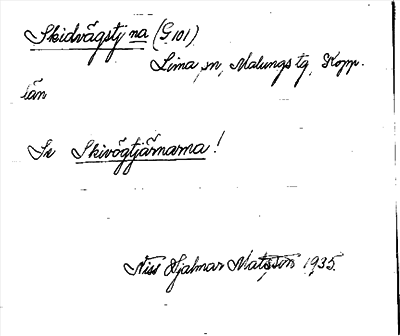 Skidvägstjna (G 101)
Lima sn, Malungs tg, Kopp.
län
Se Skivägtjärnarna!
Niss Hjalmar Matsson 1935.